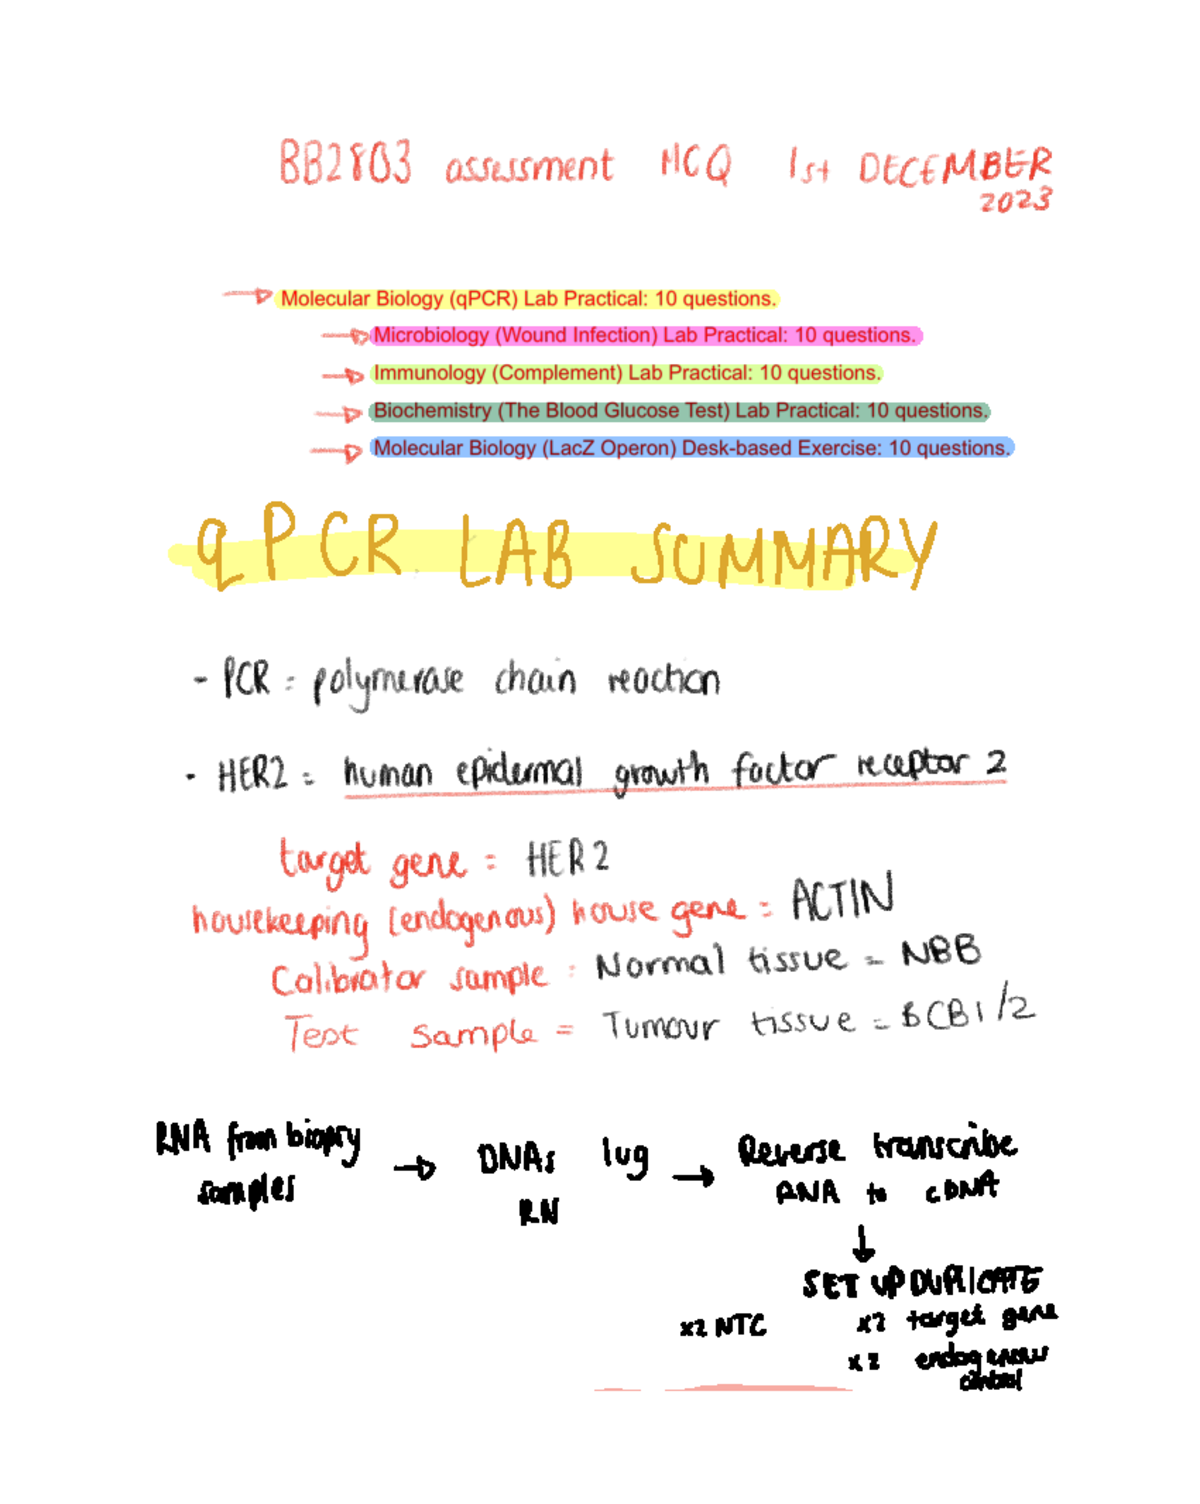 BB2803 assessment MCQ 1st DECEMBER
2023
Molecular Biology (qPCR) Lab Practical: 10 questions.
Microbiology (Wound Infection) Lab Practical: 10 questions.
Immunology (Complement) Lab Practical: 10 questions.
Biochemistry (The Blood Glucose Test) Lab Practical: 10 questions.
Molecular Biology (LacZ Operon) Desk-based Exercise: 10 questions.
qPCR LAB SUMMARY
- PCR = polymerase chain reaction
- HER2 = human epidermal growth factor receptor 2
target gene = HER2
housekeeping (endogenous) house gene = ACTIN
Calibrator sample : Normal tissue = NBB
Test sample = Tumour tissue = BCB1/2
RNA from biopsy samples → DNAs 1ug RN → Reverse transcribe RNA to cDNA
↓
SET UP DUPLICATE
x2 NTC x2 target gene
x2 endogenous control